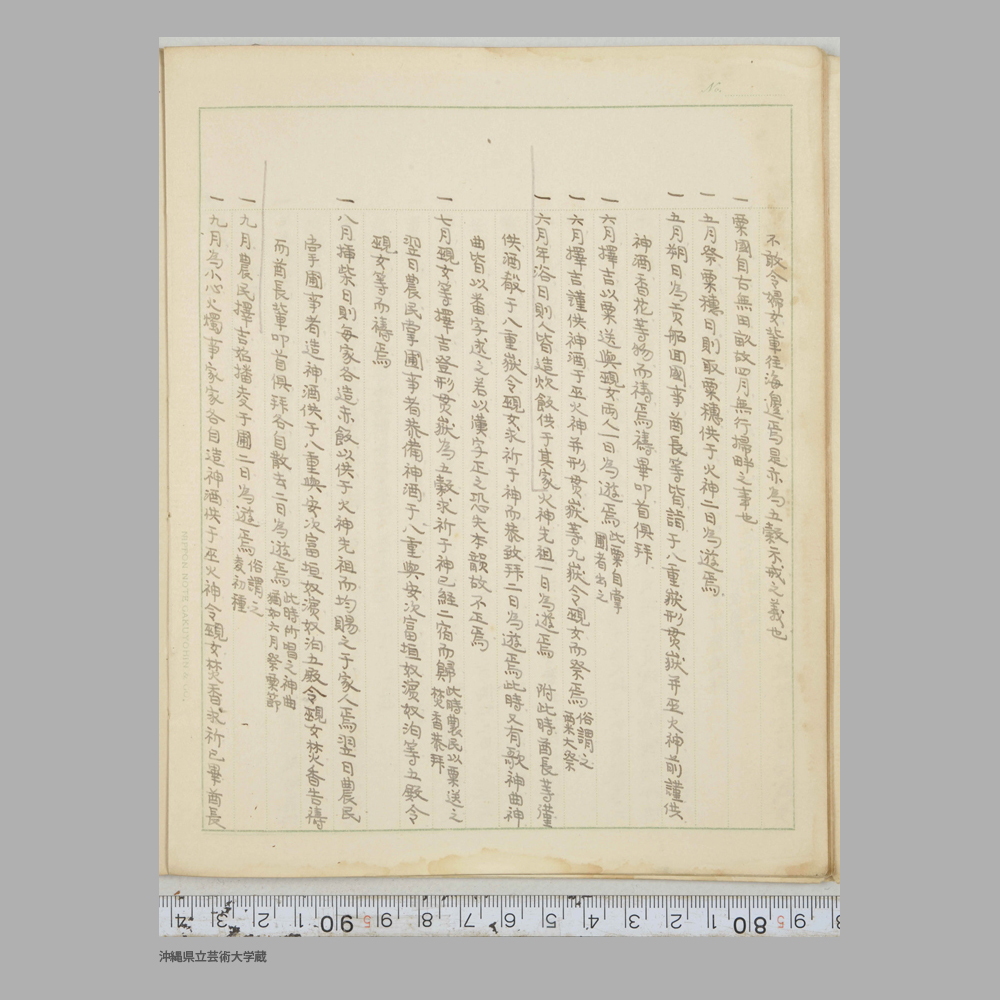 不敢令婦女輩往海邊焉是亦為五穀示戒之義也
一 粟國自右無田畝故四月無行掃畔之事也
一 五月祭粟穗日則取粟穗供于火神二日為遊焉
一 五月朔日為貢船回國事酋長等皆詣于八重嶽形貫嶽并巫火神前謹供
神酒香花等物而禱焉禱畢叩首俱拜
一 六月擇吉以粟送與覡女兩人一日為遊焉 此粟自掌圃者出之
一 六月擇吉謹供神酒于巫火神并形貫嶽等九嶽令覡女而祭焉 俗謂之粟大祭
一 六月年浴日則人皆造炊飯供于其家火神先祖一日為遊焉 附此時酋長等僅
供酒殽于八重嶽令覡女求祈于神而恭致拜二日為遊焉此時又有歌神曲神
曲皆以番字述之若以漢字正之恐失本韻故不正焉
一 七月覡女等擇吉登形貫嶽為五穀求祈于神已経二宿而歸 此時農民以粟送之焚香恭拜
翌日農民掌圃事者恭備神酒于八重與安次富垣奴濱奴泊等五殿令
覡女等而禱焉
一 八月揷柴日則每家各造赤飯以供于火神先祖而均賜之于家人焉翌日農民
掌圃事者造神酒供于八重與安次富垣奴濱奴泊五殿令覡女焚香告禱
而酋長輩叩首俱拜各自散去二日為遊焉 此時所唱之神曲猶如六月祭粟節
一 九月農民擇吉始播麥于圃二日為遊焉 俗謂之麦初種
一 九月為小心火燭事家家各自造神酒供于巫火神令覡女焚香求祈已畢酋長
No.
NIPPON NOTE GAKUYOHIN K.K.
4 3 2 1 90 9 8 7 6 5 4 3 2 1 80 9 8
沖縄県立芸術大学蔵